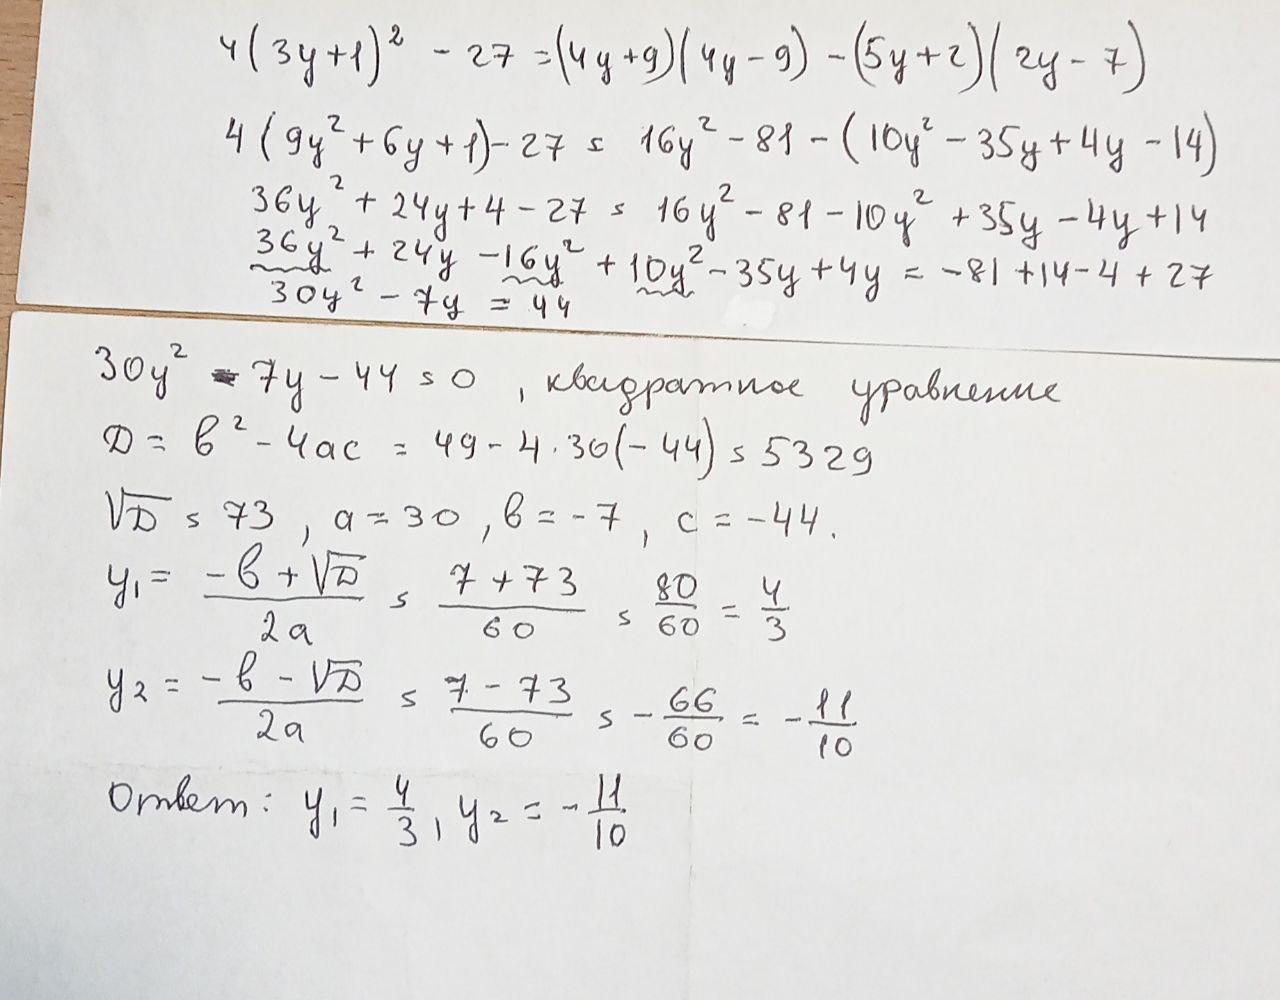 4(3y+1)² - 27 = (4y+9)(4y-9) - (5y+2)(2y-7)
4(9y²+6y+1) - 27 = 16y² - 81 - (10y² - 35y + 4y - 14)
36y² + 24y + 4 - 27 = 16y² - 81 - 10y² + 35y - 4y + 14
36y² + 24y - 16y² + 10y² - 35y + 4y = -81 + 14 - 4 + 27
30y² - 7y = 44
30y² - 7y - 44 = 0, квадратное уравнение
D = b² - 4ac = 49 - 4·30(-44) = 5329
√D = 73, a = 30, b = -7, c = -44.
y₁ = (-b + √D)/(2a) = (7 + 73)/60 = 80/60 = 4/3
y₂ = (-b - √D)/(2a) = (7 - 73)/60 = -66/60 = -11/10
Ответ: y₁ = 4/3, y₂ = -11/10